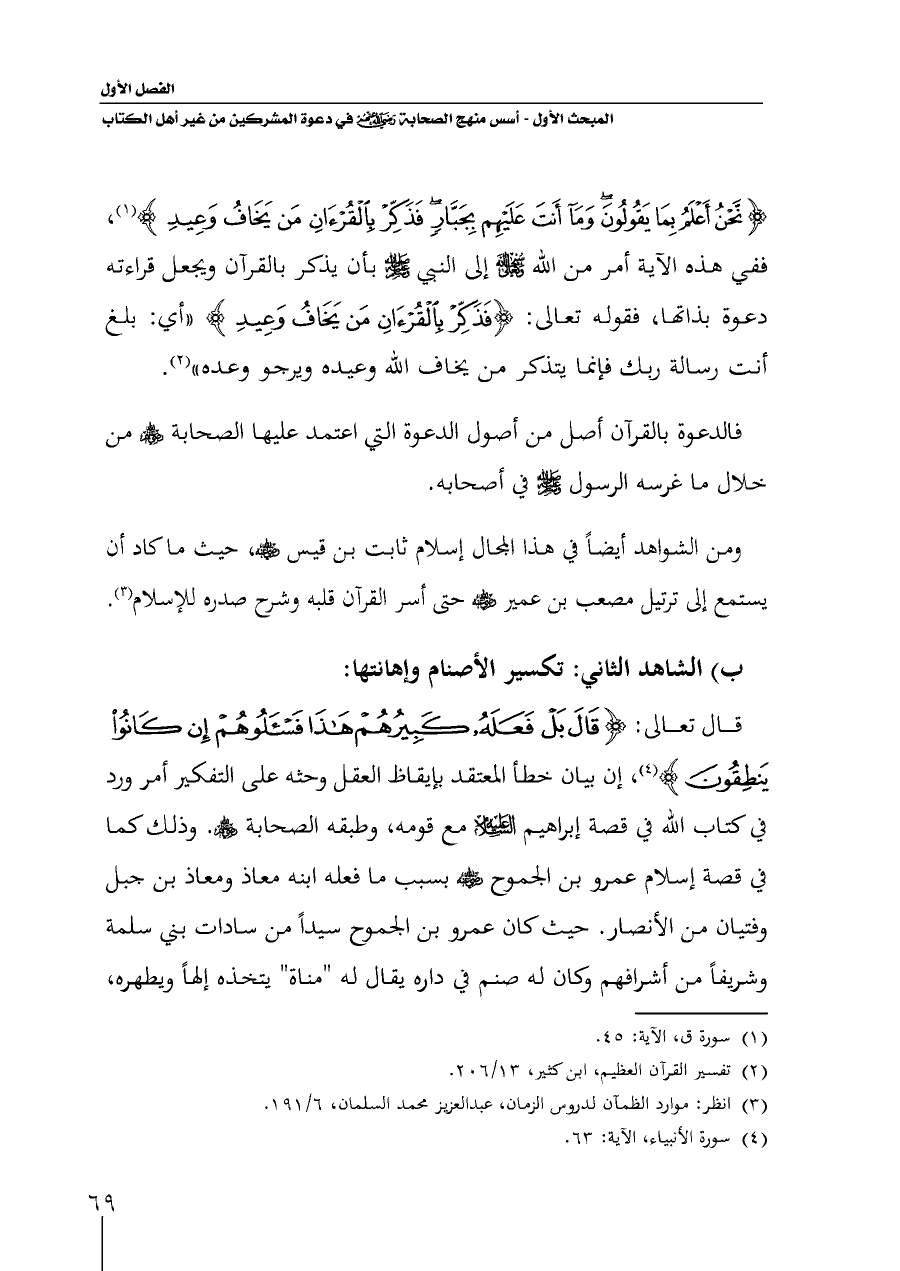 الفصل الأول
المبحث الأول - أسس منهج الصحابة ﵃ في دعوة المشركين من غير أهل الكتاب
﴿ نَّحْنُ أَعْلَمُ بِمَا يَقُولُونَ ۖ وَمَآ أَنتَ عَلَيْهِم بِجَبَّارٍ ۖ فَذَكِّرْ بِٱلْقُرْءَانِ مَن يَخَافُ وَعِيدِ ﴾(١)،
ففي هذه الآية أمر من الله ﷻ إلى النبي ﷺ بأن يذكر بالقرآن ويجعل قراءته
دعوة بذاتها، فقوله تعالى: ﴿ فَذَكِّرْ بِٱلْقُرْءَانِ مَن يَخَافُ وَعِيدِ ﴾ «أي: بلغ
أنت رسالة ربك فإنما يتذكر من يخاف الله وعيده ويرجو وعده»(٢).
فالدعوة بالقرآن أصل من أصول الدعوة التي اعتمد عليها الصحابة ﵃ من
خلال ما غرسه الرسول ﷺ في أصحابه.
ومن الشواهد أيضاً في هذا المجال إسلام ثابت بن قيس ﵁، حيث ما كاد أن
يستمع إلى ترتيل مصعب بن عمير ﵁ حتى أسر القرآن قلبه وشرح صدره للإسلام(٣).
ب) الشاهد الثاني: تكسير الأصنام وإهانتها:
قال تعالى: ﴿ قَالَ بَلْ فَعَلَهُۥ كَبِيرُهُمْ هَٰذَا فَسْـَٔلُوهُمْ إِن كَانُوا۟
يَنطِقُونَ ﴾(٤)، إن بيان خطأ المعتقد بإيقاظ العقل وحثه على التفكير أمر ورد
في كتاب الله في قصة إبراهيم ﵇ مع قومه، وطبقه الصحابة ﵃. وذلك كما
في قصة إسلام عمرو بن الجموح ﵁ بسبب ما فعله ابنه معاذ ومعاذ بن جبل
وفتيان من الأنصار. حيث كان عمرو بن الجموح سيداً من سادات بني سلمة
وشريفاً من أشرافهم وكان له صنم في داره يقال له "مناة" يتخذه إلهاً ويطهره،
(١) سورة ق، الآية: ٤٥.
(٢) تفسير القرآن العظيم، ابن كثير، ٢٠٦/١٣.
(٣) انظر: موارد الظمآن لدروس الزمان، عبدالعزيز محمد السلمان، ١٩١/٦.
(٤) سورة الأنبياء، الآية: ٦٣.
٦٩